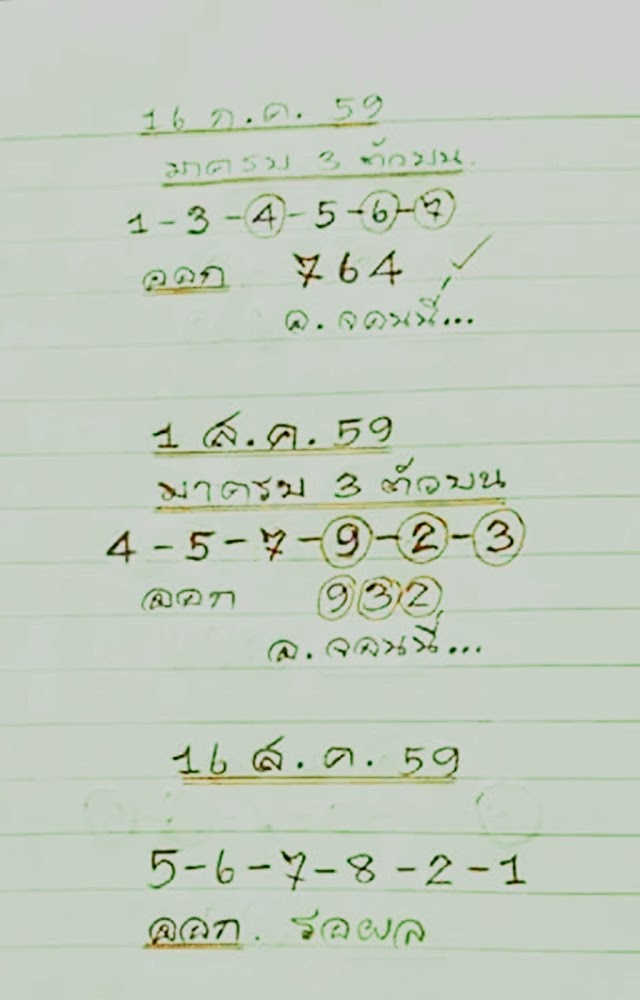 16 ก.ค. 59
มาตรบ 3 ตัวบน
1-3-4-5-6-7
ออก 764 ✓
อ.จอนนี่...
1 ส.ค. 59
มาตรบ 3 ตัวบน
4-5-7-9-2-3
ออก 932
อ.จอนนี่...
16 ส.ค. 59
5-6-7-8-2-1
ออก. รอผล